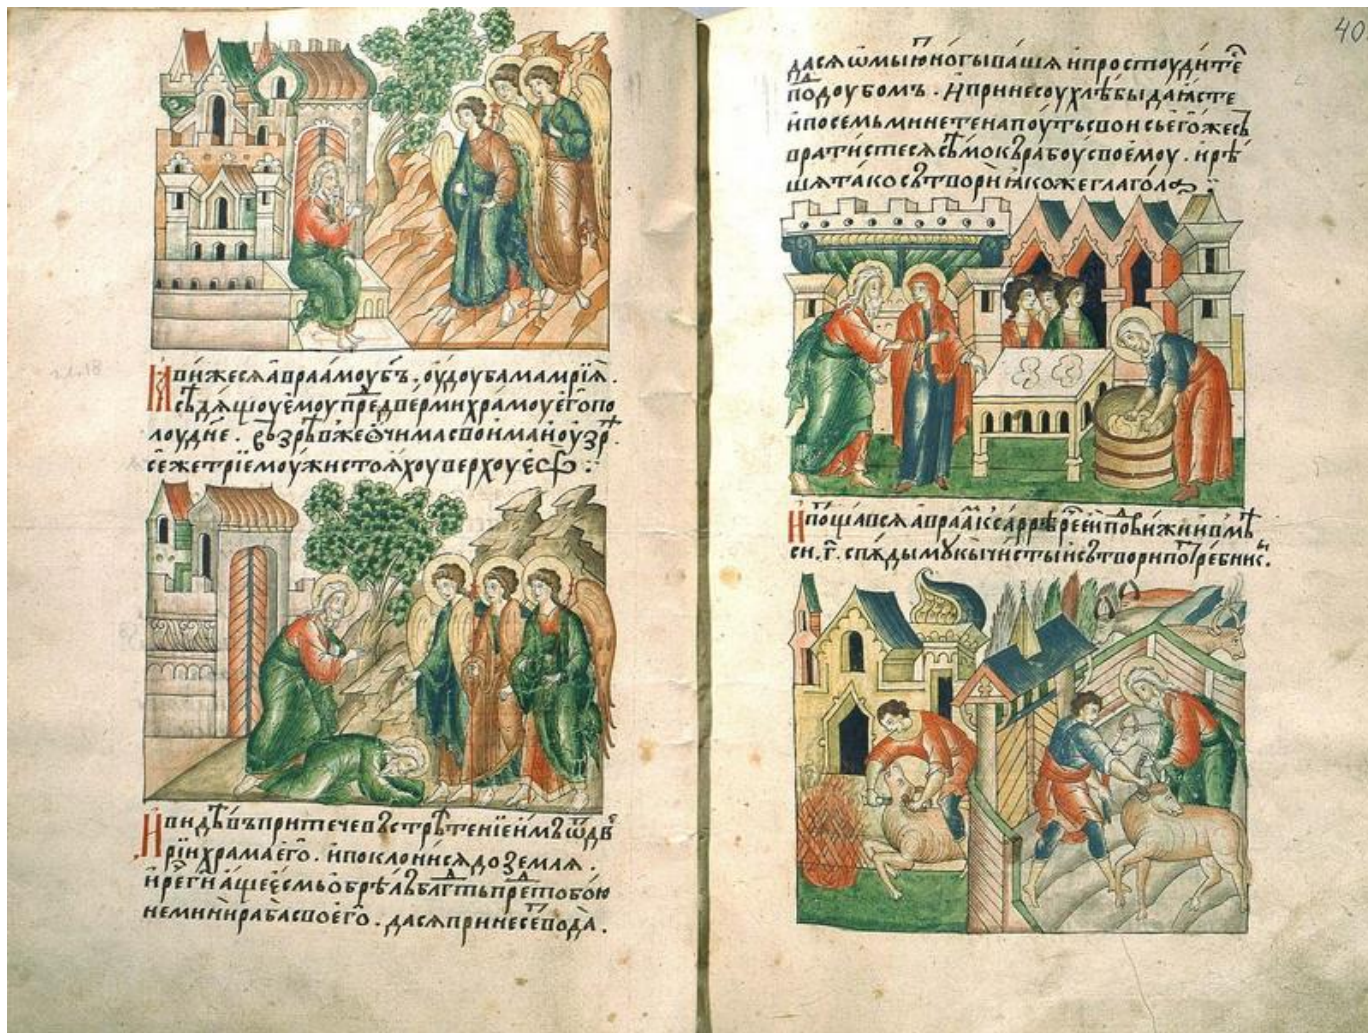 ꙗвижеся авраамоу бъ. оу доуба мамрїꙗ.
сѣдящоу ємоу предъ дверми храмоу єго по
лоудне. възрѣв же ѡчима своима и оузрѣ.
се же трїе моужи стояхоу верхоу єго:
И видѣвъ притече въ стрѣтенїе имъ ѿ двѣ
рїи храма єго. и поклонися до земля.
и рече ги аще єсмь обрѣлъ блгть пред тобою
не мини раба своєго. да ся принесет вода.
40
да ся ѡмыют ногы вашя и простоудите
под доубомъ. И принесоу хлѣбы да ꙗсте
и по семь минете на поуть свои сьего же
вратистеся сѣмо къ рабоу своємоу. и рѣ
шя тако сътвори ꙗкоже глагола:
И потщався авраам к сарръ рече єи подвижи и вмѣ
си. г. спѫды мукы чисты и сътвори потребникы.